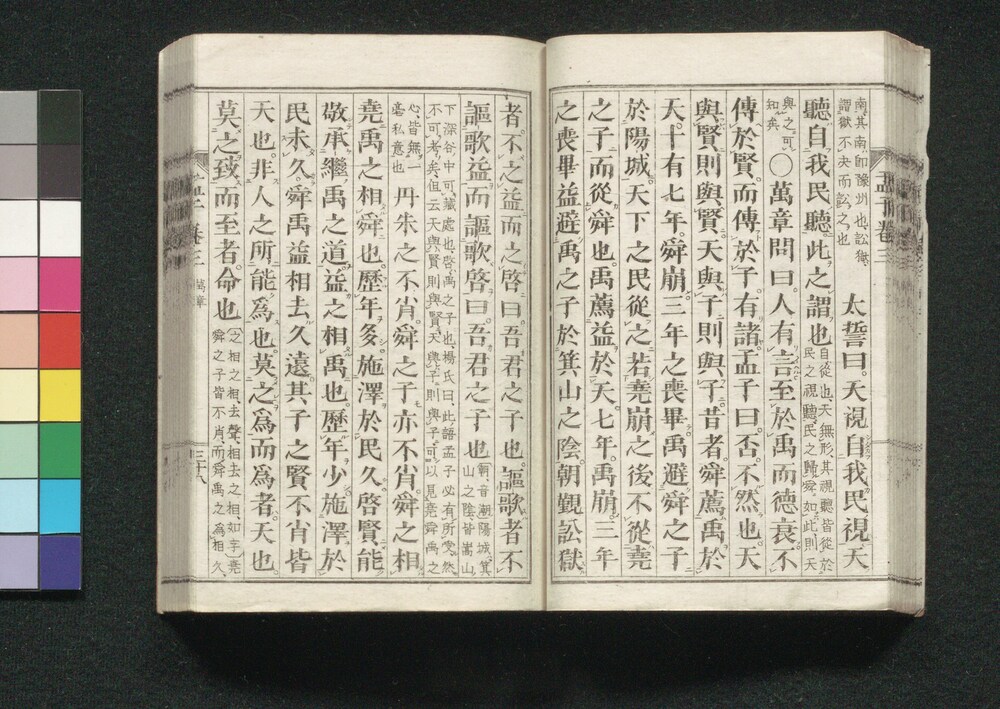 孟子卷三
南其南卽豫州也訟獄
謂獄不决而訟之也
太誓曰。天視自我民視天
聽自我民聽此之謂也
自從也天無形其視聽皆從於
民之視聽民之歸舜如此則天
與之可
知矣
〇萬章問曰。人有言至於禹而德衰不
傳於賢。而傳於子。有諸。孟子曰。否。不然也。天
與賢則與賢。天與子則與子。昔者。舜薦禹於
天。十有七年。舜崩。三年之喪畢。禹避舜之子
於陽城。天下之民從之。若堯崩之後不從堯
之子而從舜也。禹薦益於天七年。禹崩。三年
之喪畢益避禹之子於箕山之陰。朝覲訟獄
者。不之益而之啓曰。吾君之子也。謳歌者不
謳歌益而謳歌啓。曰。吾君之子也
朝音潮陽城箕
山之陰皆嵩山
下深谷中可藏處也啓禹之子也楊氏曰此語孟子必有所受然
不可考矣但云天與賢則與賢天與子則與子可以見堯舜禹之
心皆無一
毫私意也
丹朱之不肖。舜之子亦不肖。舜之相
堯。禹之相舜也。歷年多。施澤於民久。啓賢。能
敬承繼禹之道。益之相禹也。歷年少。施澤於
民未久。舜禹益相去久遠。其子之賢不肖皆
天也。非人之所能爲也。莫之爲而爲者。天也。
莫之致而至者。命也
之相之相去聲相去之相如字〇堯
舜之子皆不肖而舜禹之爲相久
孟子卷三
萬章
三十八